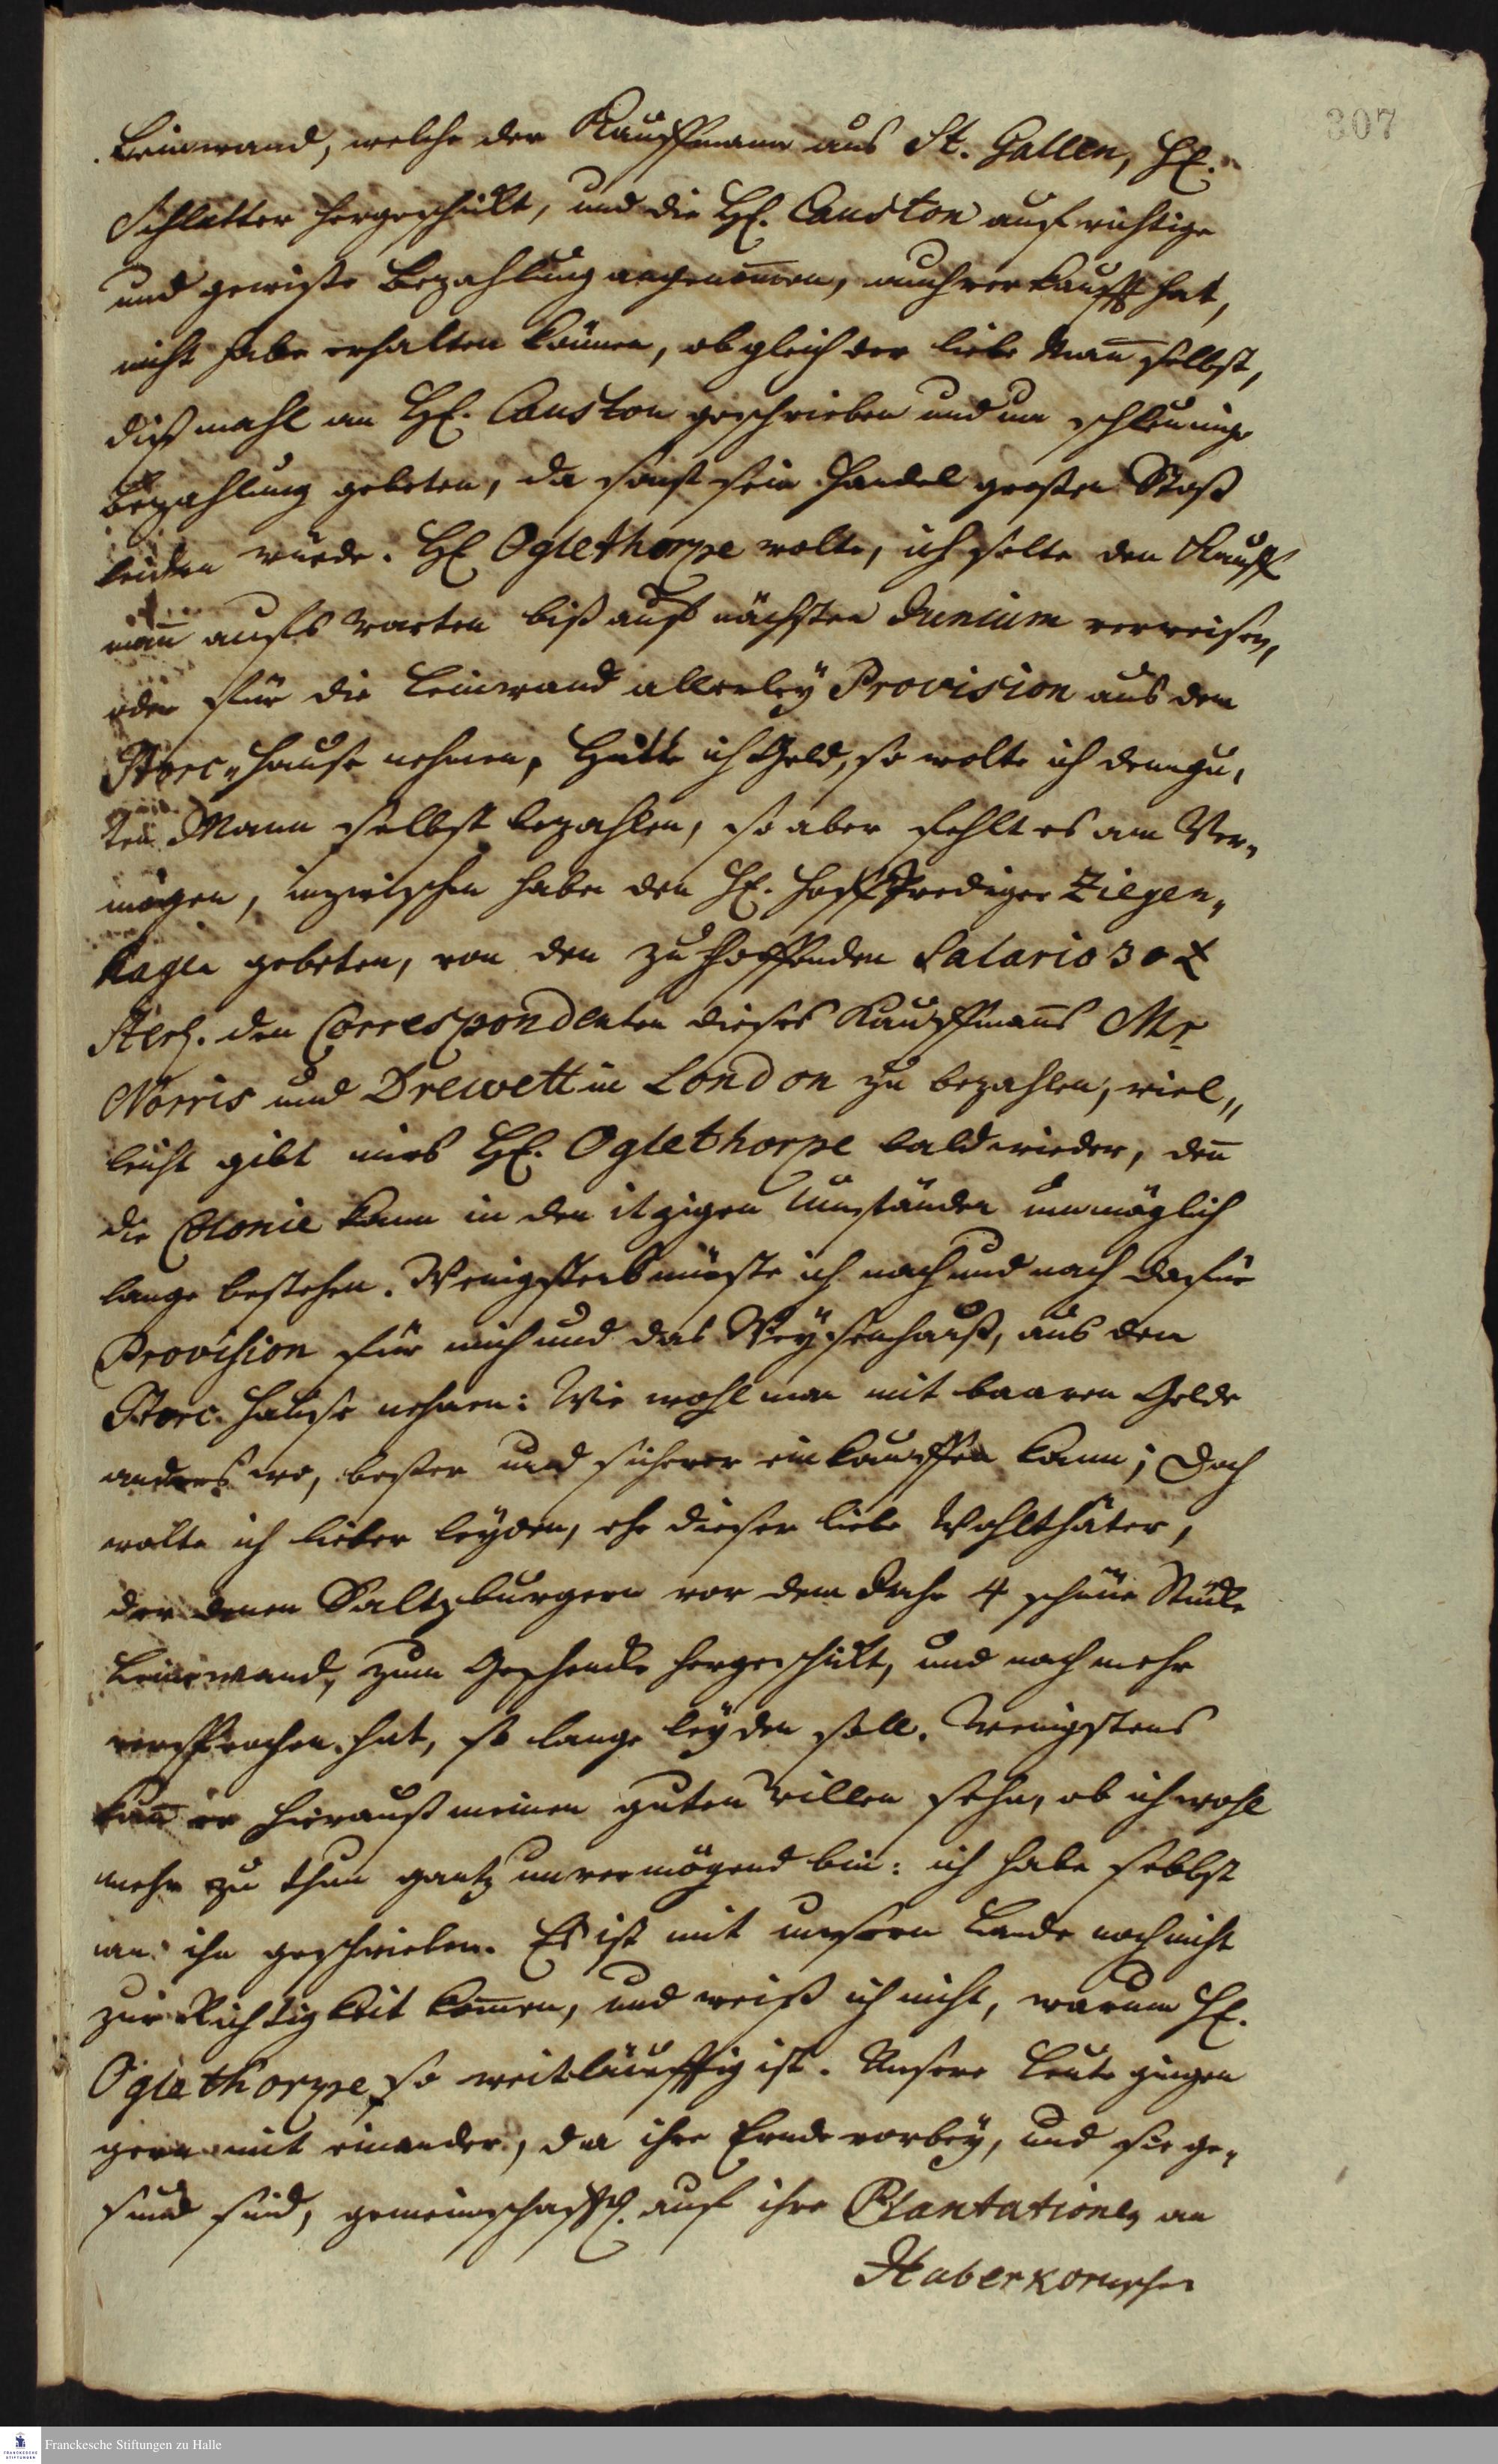 307
Leinwand, welche der Kauffmann aus St. Gallen, H.
Schlatter hergeschickt, und die H. Causton auf richtige
und gewiße Bezahlung angenom̅en, auch verkaufft hat,
nicht habe erhalten können, obgleich der liebe Man̅ selbst,
dißmahl an H. Causton geschrieben und um schleunige
Bezahlung gebeten, da sonst sein Handel großen Stoß
leiden würde. H Oglethorpe wolte, ich solte den Kauff
man̅ aufs warten biß auf nächsten Junium verweisen,
oder für die Leinwand allerley Provision aus dem
Store-Hause nehmen, Hätte ich Geld, so wolte ich dem gu-
ten Mann selbst bezahlen, so aber fehlt es am Ver-
mögen, inzwischen habe den H. Hoff Prediger Ziegen-
hagen gebeten, von den zu hoffenden Salario 30 £
Sterl. den Correspondenten dieses Kauffman̅s Mr
Norris und Drewett in London zu bezahlen, viel-
leicht gibt mirs H. Oglethorpe bald wieder, den̅
die Colonie kann in den itzigen Umständen unmöglich
lange bestehen. Wenigstens müste ich nach und nach dafür
Provision für mich und das Weysenhauß, aus den
Store-Hause nehmen: Wie wohl man mit baaren Gelde
anders wo, beßer und sicherer einkauffen kann; Doch
wolte ich lieber leyden, ehe dieser liebe Wohlthäter,
der denen Saltzburgern vor dem Jahr 4 schöne Stücke
Leinwand, zum Geschencke hergeschickt, und noch mehr
versprochen hat, so lange leyden soll. Wenigstens
kan̅ er hierauß meinen guten Willen sehn, ob ich wohl
mehr zu thun gantz unvermögend bin: ich habe selbst
an ihn geschrieben. Es ist mit unserm Lande noch nicht
zur Richtigkeit kom̅en, und weiß ich nicht, warum H.
Oglethorpe so weitläufftig ist. Unsere Leute gingen
gern mit einander, da ihre Ernde vorbey, und sie ge-
sund sind, gemeinschafftl. auf ihre Plantationen an
Haberkornscher
Franckesche Stiftungen zu Halle